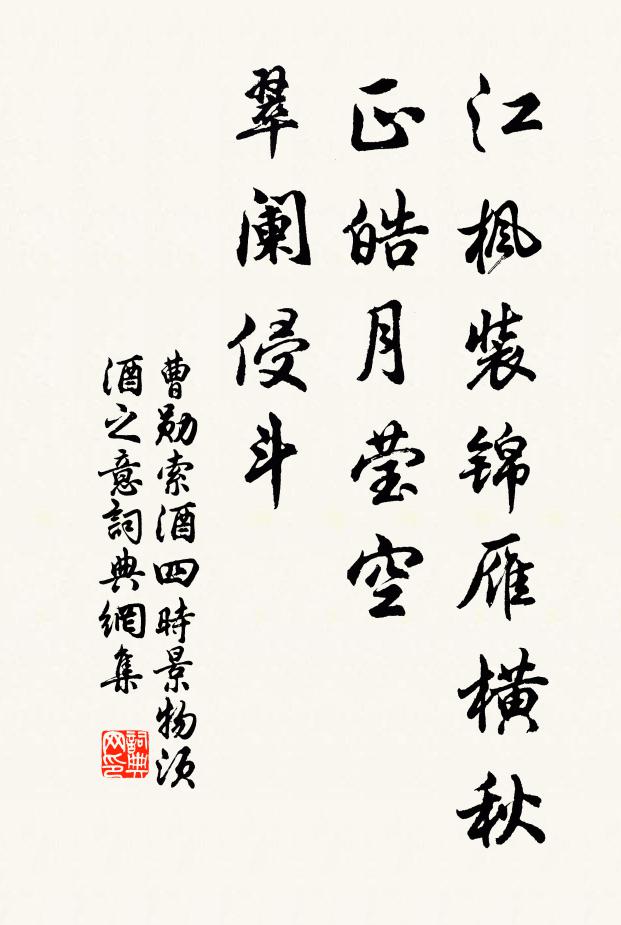 江枫装锦雁横秋
正皓月莹空
翠阑侵斗
曹勋索酒四時景物須
酒之意詞典網集
詞典网印